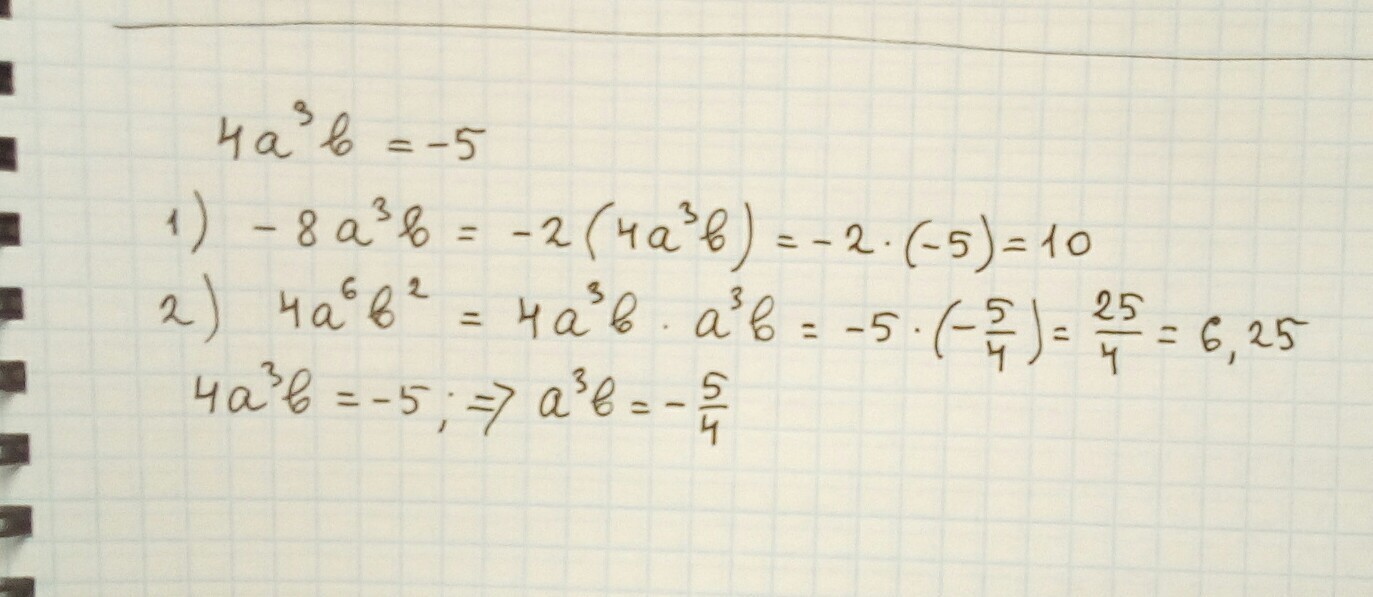 4a³b = -5
1) -8a³b = -2(4a³b) = -2·(-5) = 10
2) 4a⁶b² = 4a³b · a³b = -5·(-5/4) = 25/4 = 6,25
4a³b = -5; => a³b = -5/4